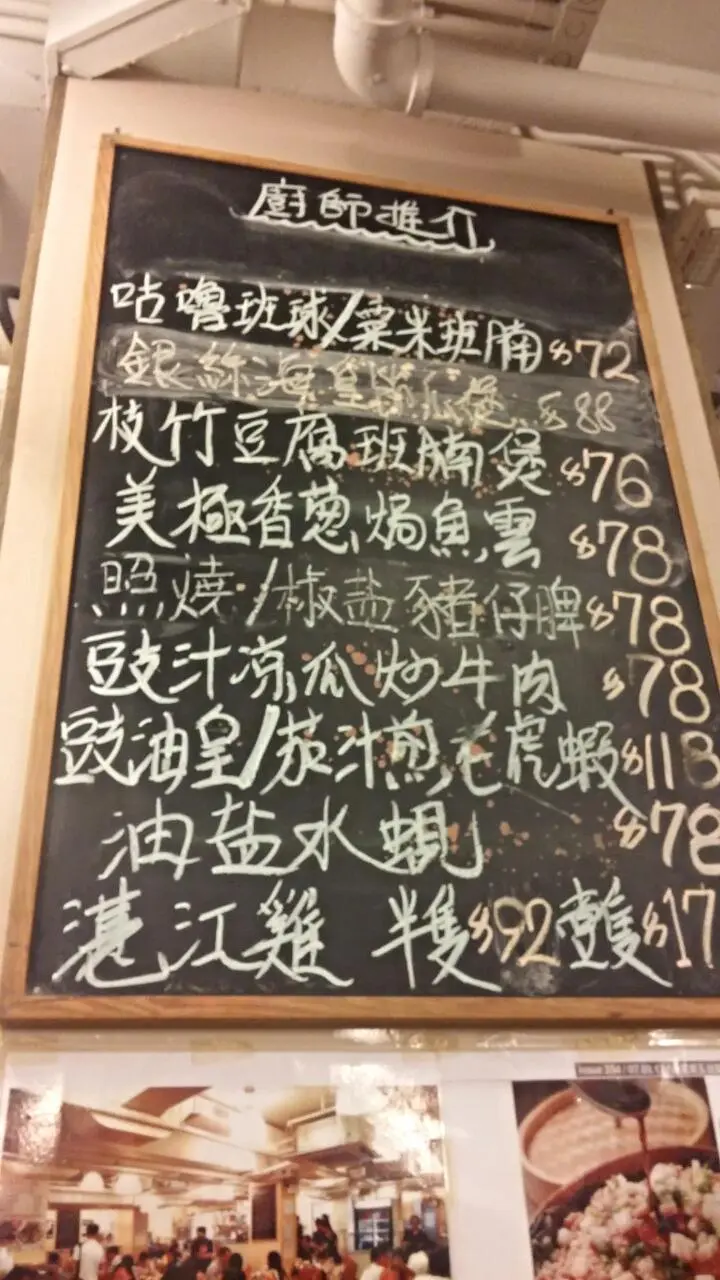 廚師推介
咕嚕班球/粟米班腩 $72
銀絲海皇 煲 $88
枝竹豆腐班腩煲 $76
美極香葱焗魚雲 $78
照燒/椒盐豬仔脾 $78
豉汁凉瓜炒牛肉 $78
豉油皇/茄汁煎老虎蝦 $118
油盐水蜆 $78
湛江雞 半隻$92 壹隻$17